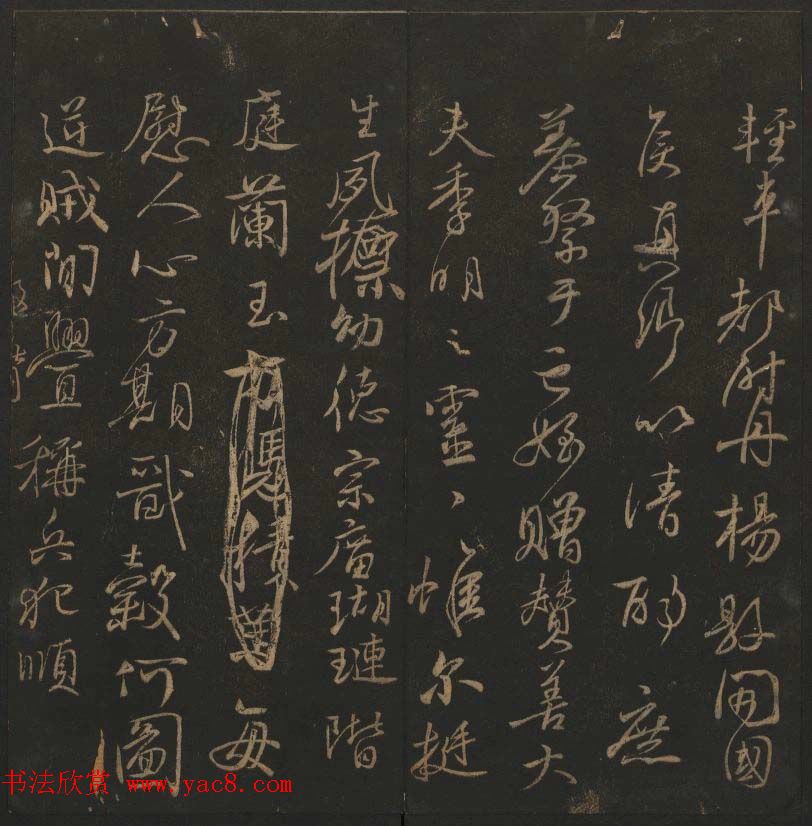 輕車都尉丹楊縣開國
侯真卿以清酌庶
羞祭于亡姪贈贊善大
夫季明之靈曰惟尔挺
生夙標幼德宗廟瑚璉階
庭蘭玉方憑積善每
慰人心方期戩穀何圖
逆賊間釁稱兵犯順
书法欣赏 www.yac8.com